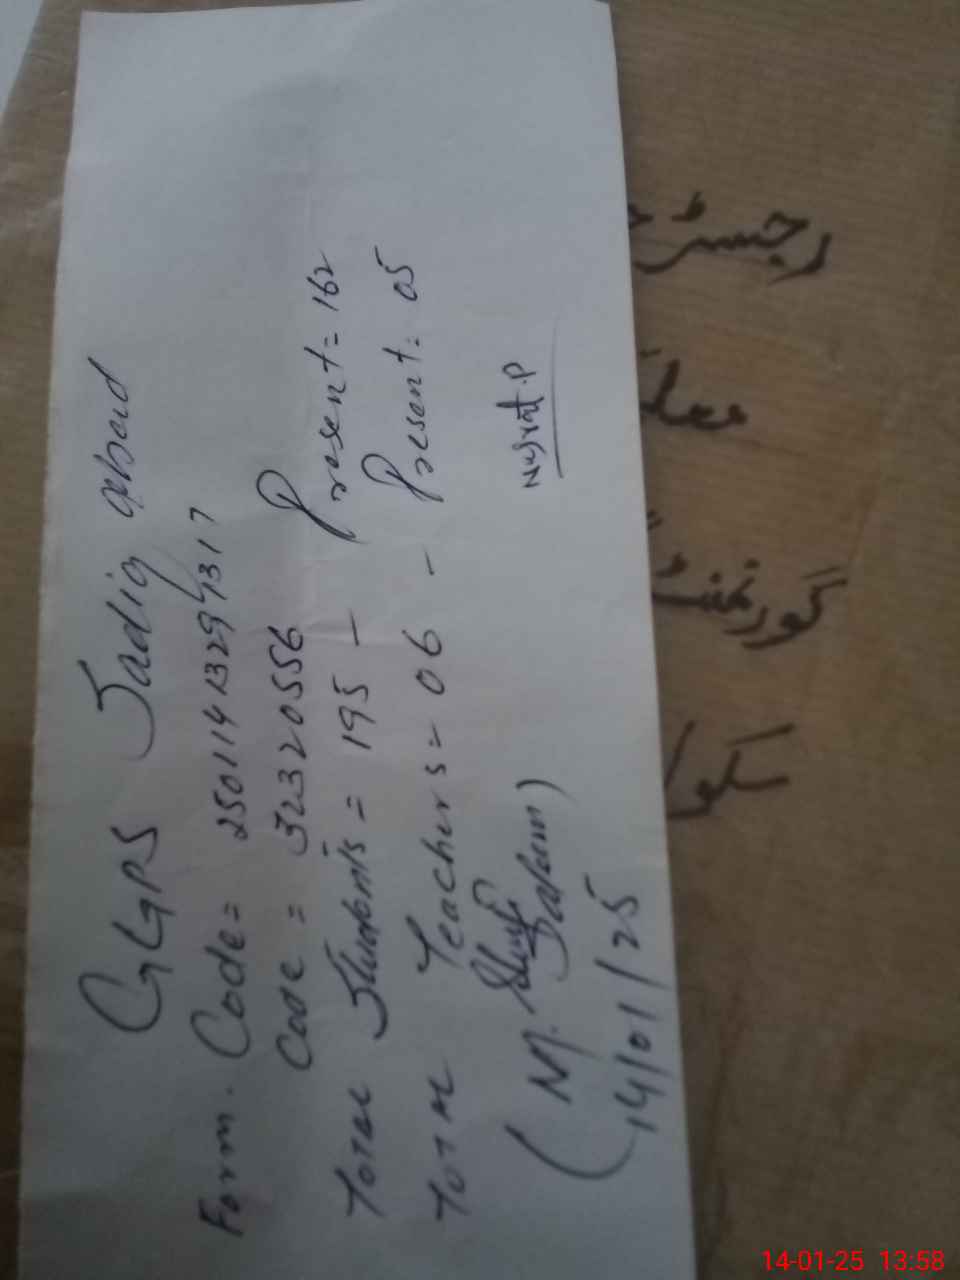 GGPS Sadiq abad
Form. Code = 25011413299317
Code = 32320556
Total Students = 195 – Present = 162
Total Teachers = 06 – Present = 05
(M.
14/01/25
Nusrat.P
رجسٹر
گورنمنٹ
14-01-25 13:58